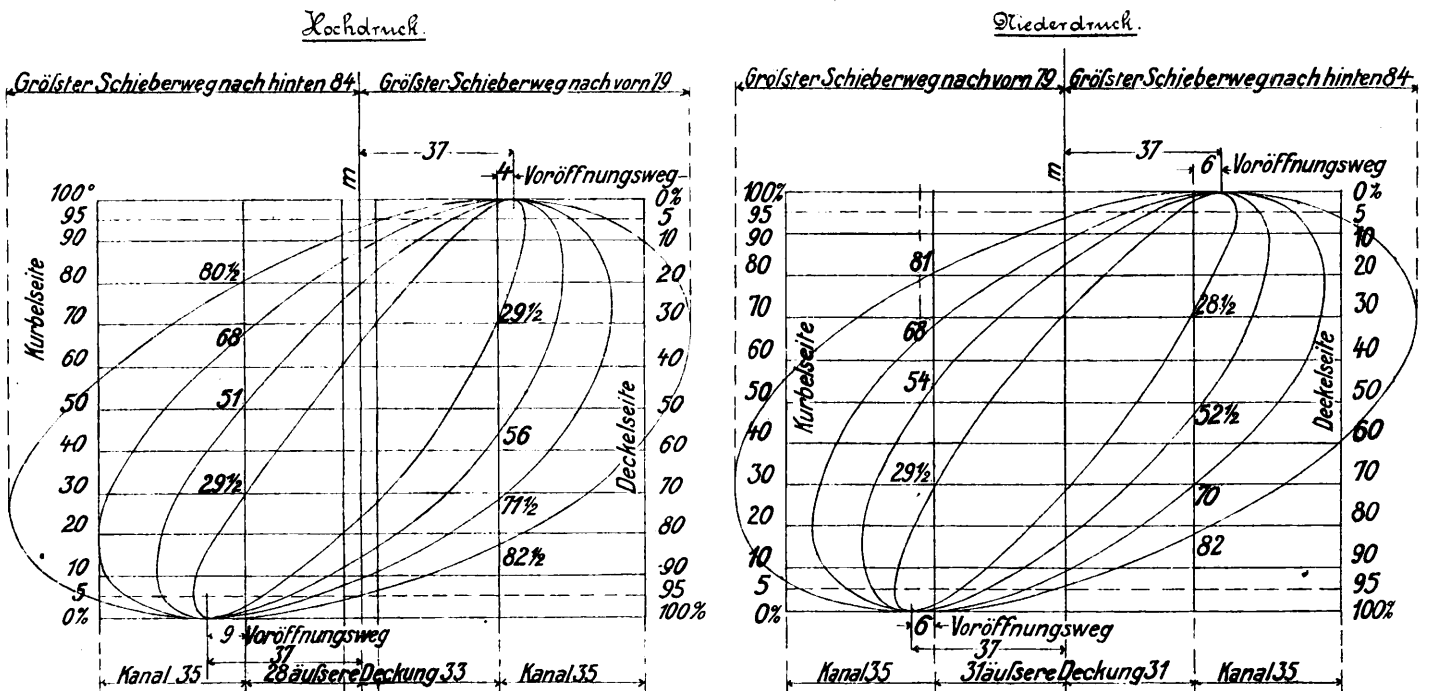 Hochdruck.
Größter Schieberweg nach hinten 84
Größter Schieberweg nach vorn 79
37
4
Voröffnungsweg
m
Kurbelseite
100°
95
90
80
70
60
50
40
30
20
10
5
0%
80½
68
51
29½
29½
56
71½
82½
0%
5
10
20
30
40
50
60
70
80
90
95
100%
Deckelseite
9 Voröffnungsweg
37
Kanal 35
28 äußere Deckung 33
Kanal 35
Niederdruck.
Größter Schieberweg nach vorn 79
Größter Schieberweg nach hinten 84
37
6
Voröffnungsweg
m
Kurbelseite
100%
95
90
80
70
60
50
40
30
20
10
5
0%
81
68
54
29½
28½
52½
70
82
0%
5
10
20
30
40
50
60
70
80
90
95
100%
Deckelseite
6 Voröffnungsweg
37
Kanal 35
31 äußere Deckung 31
Kanal 35